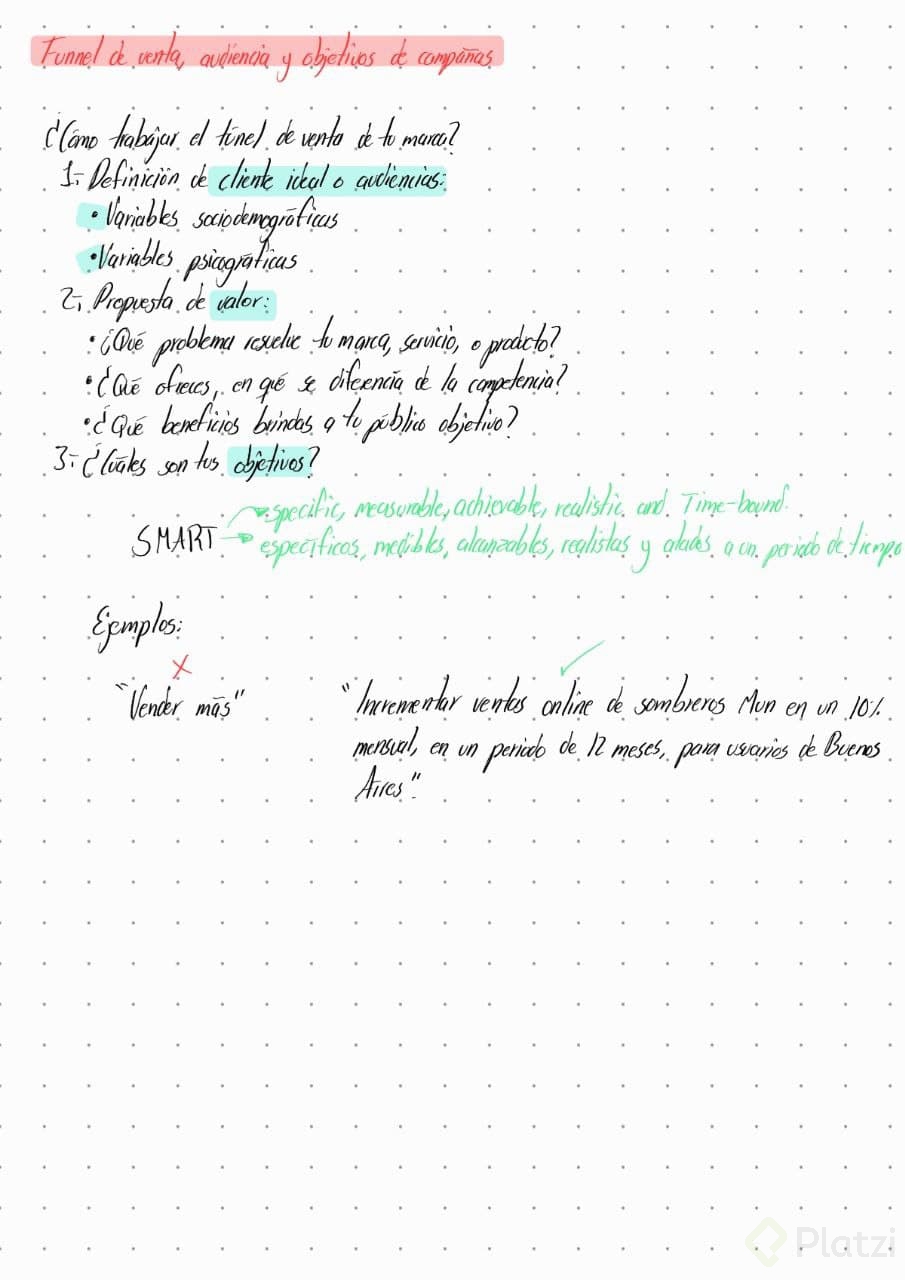 Funnel de venta, audiencia y objetivos de campañas
¿Cómo trabajar el túnel de venta de tu marca?
1- Definición de cliente ideal o audiencias:
• Variables sociodemográficas
• Variables psicográficas
2- Propuesta de valor:
• ¿Qué problema resuelve tu marca, servicio, o producto?
• ¿Qué ofreces, en qué se diferencia de la competencia?
• ¿Qué beneficios brindas a tu público objetivo?
3- ¿Cuáles son tus objetivos?
specific, measurable, achievable, realistic and Time-bound.
SMART
específicos, medibles, alcanzables, realistas y atados a un periodo de tiempo
Ejemplos:
"Vender más"
"Incrementar ventas online de sombreros Mun en un 10%
mensual, en un periodo de 12 meses, para usuarios de Buenos
Aires"
Platzi